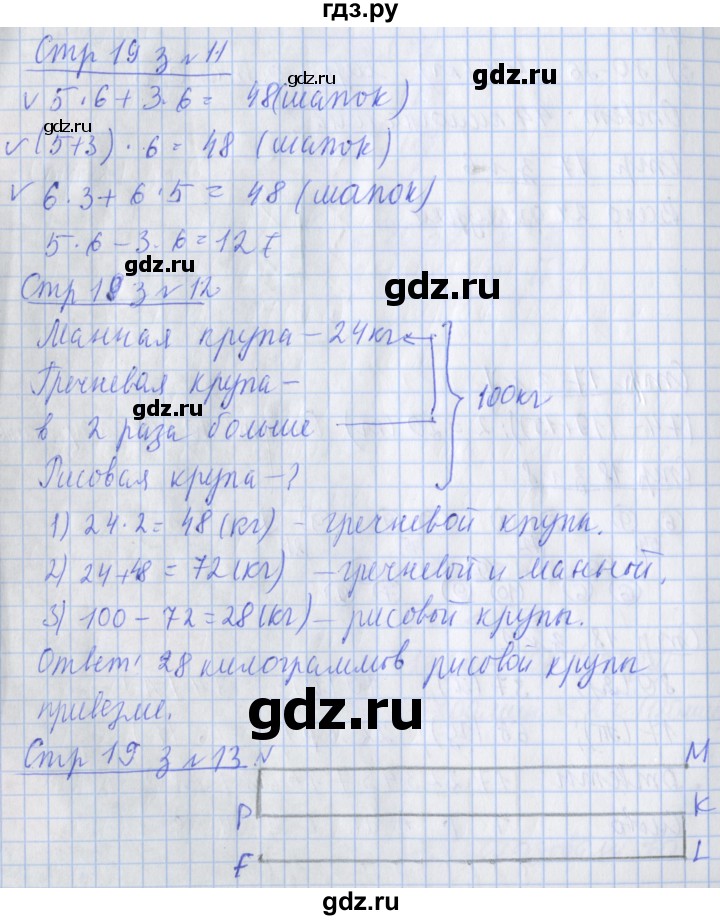 гдз.ру
Стр 19 з №11
gdz.ru
gdz.ru
✓ 5·6+3·6= 48(шапок)
gdz.ru
✓ (5+3)·6= 48 (шапок)
✓ 6·3+6·5= 48 (шапок)
5·6-3·6=12
gdz.ru
gdz.ru
Стр 19 з №12
Манная крупа-24кг
Гречневая крупа-
100кг
gdz.ru
в 2 раза больше
Рисовая крупа-?
1) 24·2= 48(кг) - гречневой крупы.
gdz.ru
2) 24+48=72(кг) -гречневой и манной.
3) 100-72=28(кг)-рисовой крупы.
gdz.ru
Ответ: 28 килограммов рисовой крупы
привезли.
gdz.ru
Стр 19 з №13
N
M
P
K
F
L
gdz.ru